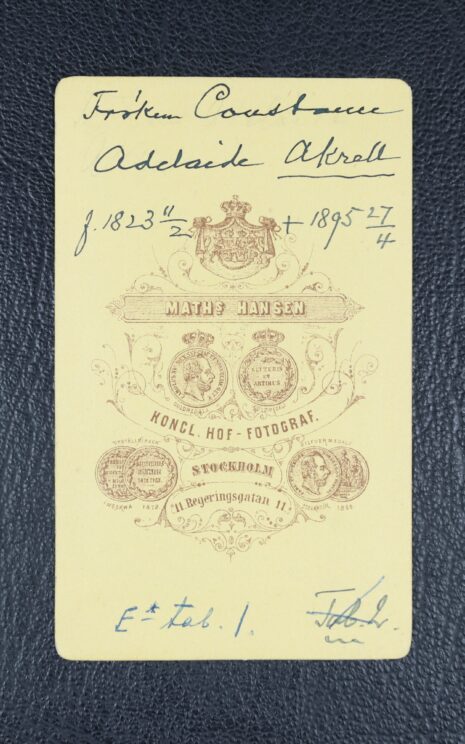 Fröken Constance
Adelaide Akrell
f. 1823 11/2 + 1895 27/4
MATHS HANSEN
LITTERIS
ET
ARTIBUS
KONGL. HOF-FOTOGRAF.
STOCKHOLM
11 Regeringsgatan 11
MOSKWA 1872
STOCKHOLM 1866
E* tab. 1.